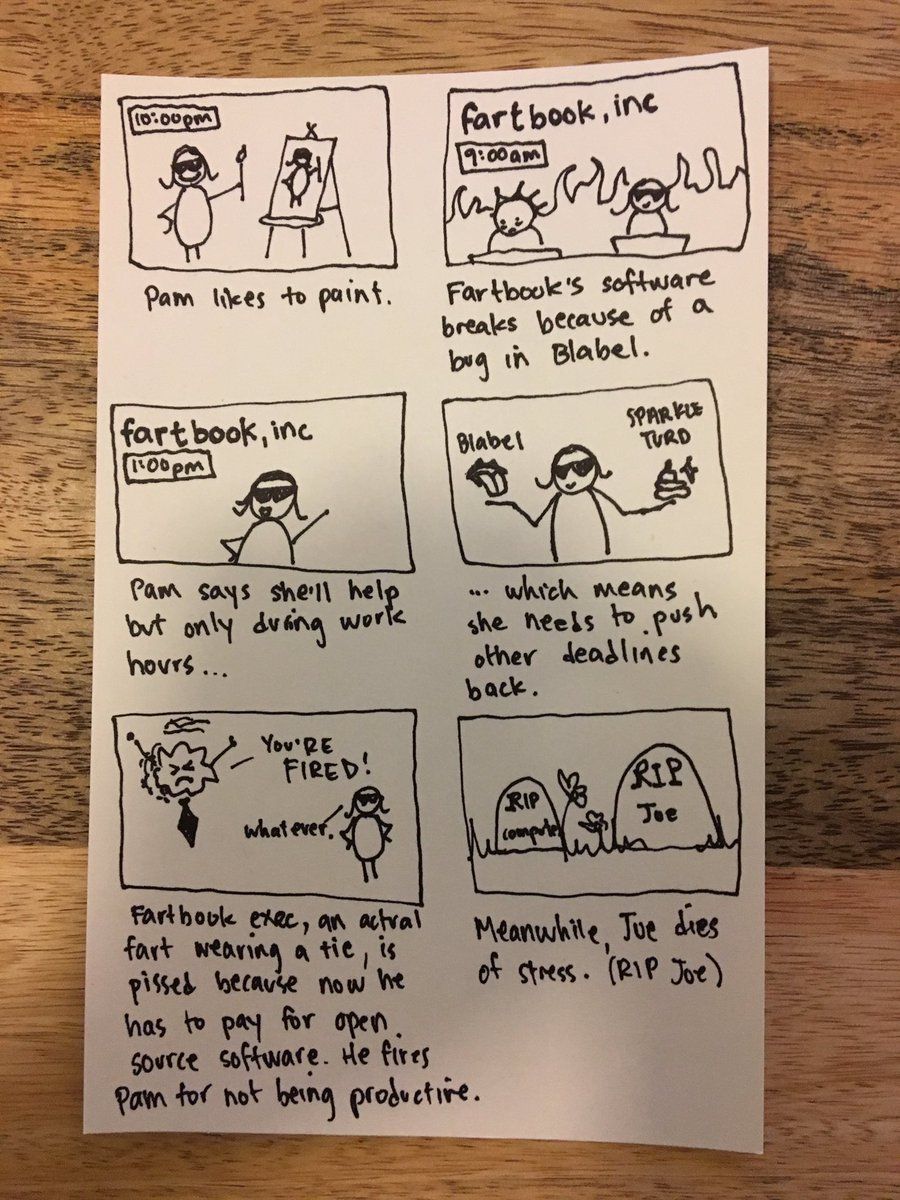 10:00pm
Pam likes to paint.
fartbook, inc
9:00am
Fartbook's software
breaks because of a
bug in Blabel.
fartbook, inc
1:00pm
Pam says she'll help
but only during work
hours...
Blabel
SPARKLE
TURD
... which means
she needs to push
other deadlines
back.
YOU'RE
FIRED!
whatever.
Fartbook exec, an actual
fart wearing a tie, is
pissed because now he
has to pay for open
source software. He fires
Pam for not being productive.
RIP
computer
RIP
Joe
Meanwhile, Joe dies
of stress. (RIP Joe)